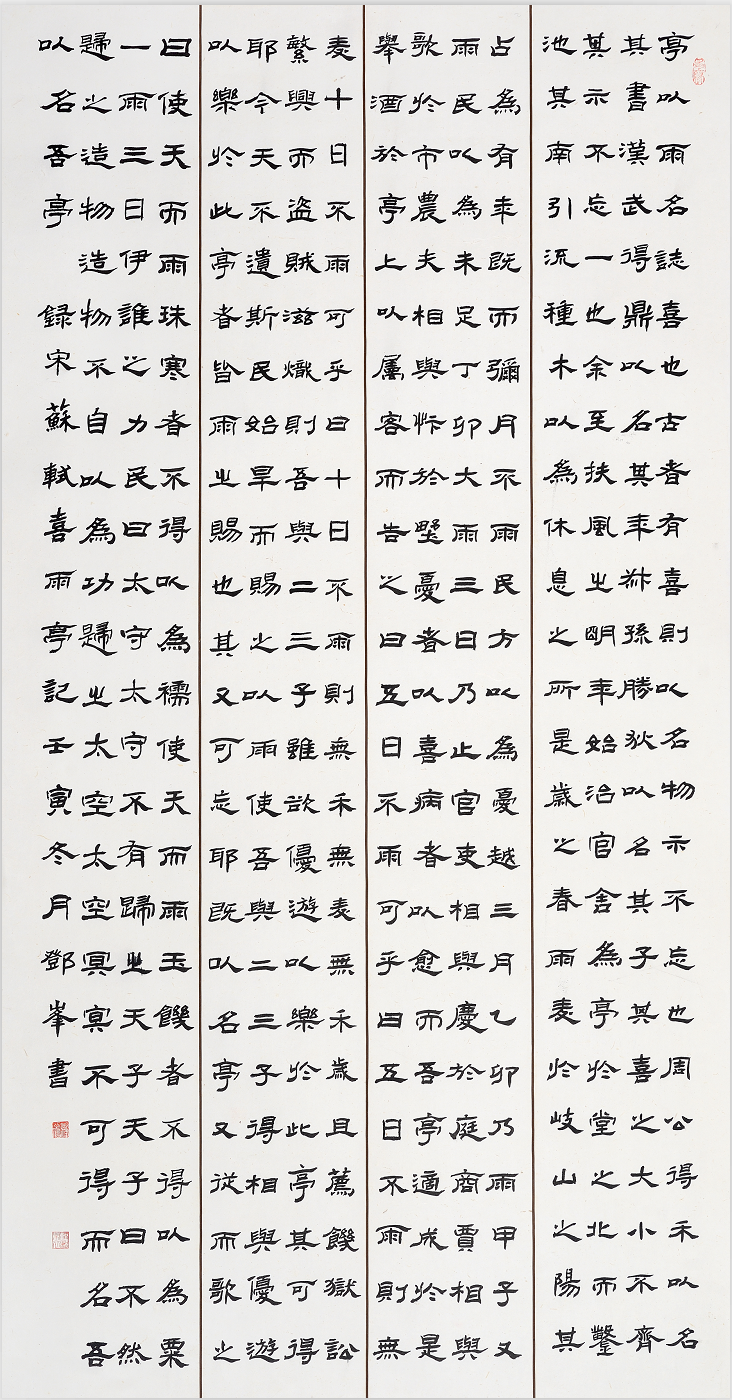 亭以雨名誌喜也古者有喜則以名物示不忘也周公得禾以名
其書漢武得鼎以名其年叔孫勝狄以名其子其喜之大小不齊
其示不忘一也余至扶風之明年始治官舍為亭於堂之北而鑿
池其南引流種木以為休息之所是歲之春雨麦於岐山之陽其
占為有年既而彌月不雨民方以為憂越三月乙卯乃雨甲子又
雨民以為未足丁卯大雨三日乃止官吏相與慶於庭商賈相與
歌於市農夫相與忭於野憂者以喜病者以愈而吾亭適成於是
舉酒於亭上以屬客而告之曰五日不雨可乎曰五日不雨則無
麦十日不雨可乎曰十日不雨則無禾無麦無禾歲且薦饑獄訟
繁興而盜賊滋熾則吾與二三子雖欲優遊以樂於此亭其可得
耶今天不遺斯民始旱而賜之以雨使吾與二三子得相與優遊
以樂於此亭者皆雨之賜也其又可忘耶既以名亭又從而歌之
曰使天而雨珠寒者不得以為襦使天而雨玉饑者不得以為粟
一雨三日伊誰之力民曰太守太守不有歸之天子天子曰不然
歸之造物造物不自以為功歸之太空太空冥冥不可得而名吾
以名吾亭 錄宋蘇軾喜雨亭記壬寅冬月鄧峯書